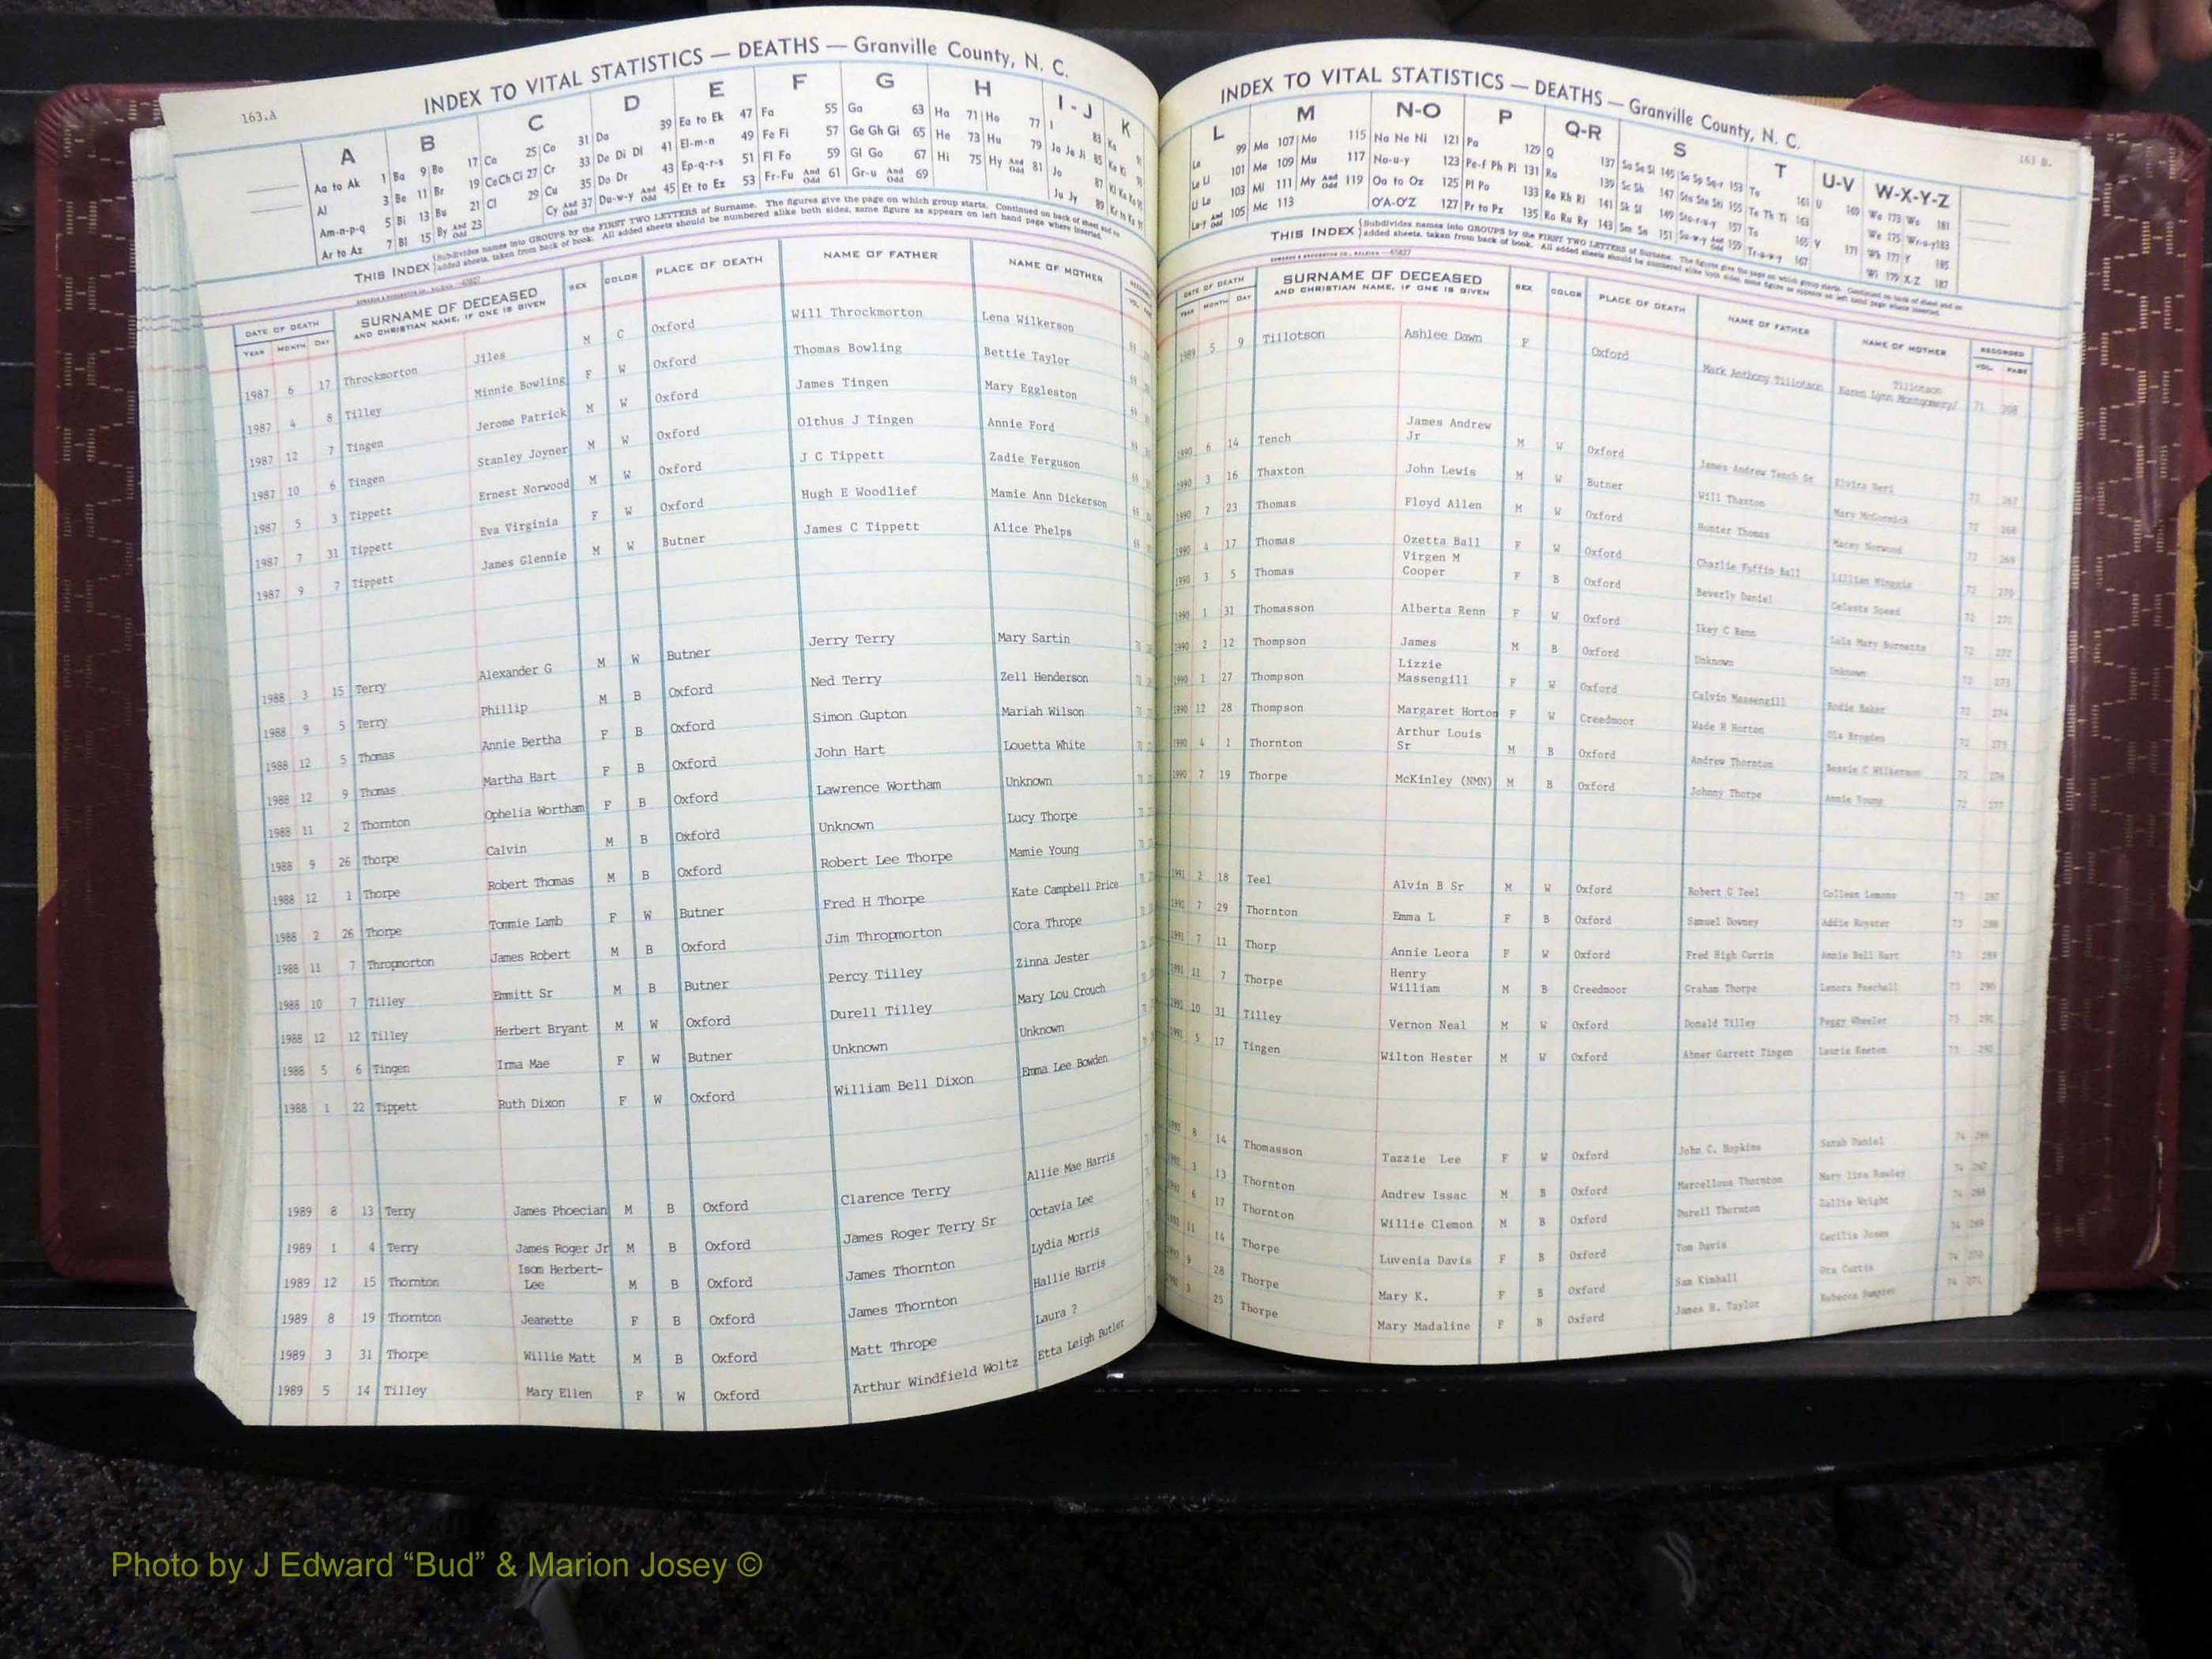 163.A
INDEX TO VITAL STATISTICS — DEATHS — Granville County, N. C.
A B C D E F G H I - J K
Aa to Ak 1 Ba 9 Bo 17 Ca 25 Co 31 Da 39 Ea to Ek 47 Fa 55 Ga 63 Ha 71 Ho 77 I 83 Ka 91
Al 3 Be 11 Br 19 Ce Ch Ci 27 Cr 33 De Di Dl 41 El-m-n 49 Fe Fi 57 Ge Gh Gi 65 He 73 Hu 79 Ja Je Ji 85 Ke Ki
Am-n-p-q 5 Bi 13 Bu 21 Cl 29 Cu 35 Do Dr 43 Ep-q-r-s 51 Fl Fo 59 Gl Go 67 Hi 75 Hy And Odd 81 Jo 87
Ar to Az 7 Bl 15 By And Odd 23 Cy And Odd 37 Du-w-y And Odd 45 Et to Ez 53 Fr-Fu And Odd 61 Gr-u And Odd 69 Ju Jy 89
THIS INDEX Subdivides names into GROUPS by the FIRST TWO LETTERS of Surname. The figures give the page on which group starts. Continued on back of sheet and on
added sheets, taken from back of book. All added sheets should be numbered alike both sides, same figure as appears on left hand page where inserted.
DATE OF DEATH SURNAME OF DECEASED SEX COLOR PLACE OF DEATH NAME OF FATHER NAME OF MOTHER
YEAR MONTH DAY AND CHRISTIAN NAME, IF ONE IS GIVEN
1987 6 17 Throckmorton Jiles M C Oxford Will Throckmorton Lena Wilkerson
1987 4 8 Tilley Minnie Bowling F W Oxford Thomas Bowling Bettie Taylor
1987 12 7 Tingen Jerome Patrick M W Oxford James Tingen Mary Eggleston
1987 10 6 Tingen Stanley Joyner M W Oxford Olthus J Tingen Annie Ford
1987 5 3 Tippett Ernest Norwood M W Oxford J C Tippett Zadie Ferguson
1987 7 31 Tippett Eva Virginia F W Oxford Hugh E Woodlief Mamie Ann Dickerson
1987 9 7 Tippett James Glennie M W Butner James C Tippett Alice Phelps
1988 3 15 Terry Alexander G M W Butner Jerry Terry Mary Sartin
1988 9 5 Terry Phillip M B Oxford Ned Terry Zell Henderson
1988 12 5 Thomas Annie Bertha F B Oxford Simon Gupton Mariah Wilson
1988 12 9 Thomas Martha Hart F B Oxford John Hart Louetta White
1988 11 2 Thornton Ophelia Wortham F B Oxford Lawrence Wortham Unknown
1988 9 26 Thorpe Calvin M B Oxford Unknown Lucy Thorpe
1988 12 1 Thorpe Robert Thomas M B Oxford Robert Lee Thorpe Mamie Young
1988 2 26 Thorpe Tommie Lamb F W Butner Fred H Thorpe Kate Campbell Price
1988 11 7 Thropmorton James Robert M B Oxford Jim Thropmorton Cora Thrope
1988 10 7 Tilley Emmitt Sr M B Butner Percy Tilley Zinna Jester
1988 12 12 Tilley Herbert Bryant M W Oxford Durell Tilley Mary Lou Crouch
1988 5 6 Tingen Irma Mae F W Butner Unknown Unknown
1988 1 22 Tippett Ruth Dixon F W Oxford William Bell Dixon Emma Lee Bowden
1989 8 13 Terry James Phoecian M B Oxford Clarence Terry Allie Mae Harris
1989 1 4 Terry James Roger Jr M B Oxford James Roger Terry Sr Octavia Lee
1989 12 15 Thornton Isom Herbert-
Lee M B Oxford James Thornton Lydia Morris
1989 8 19 Thornton Jeanette F B Oxford James Thornton Hallie Harris
1989 3 31 Thorpe Willie Matt M B Oxford Matt Thrope Laura ?
1989 5 14 Tilley Mary Ellen F W Oxford Arthur Windfield Woltz Etta Leigh Butler
163 B.
INDEX TO VITAL STATISTICS — DEATHS — Granville County, N. C.
L M N-O P Q-R S T U-V W-X-Y-Z
La 99 Ma 107 Mo 115 Na Ne Ni 121 Pa 129 Q 137 Sa Se Si 145 So Sp Sq-r 153 Ta 161 U 169 Wa 173 Wo 181
Le Li 101 Me 109 Mu 117 No-u-y 123 Pe-f Ph Pi 131 Ra 139 Sc Sh 147 Sta Ste Sti 155 Te Th Ti 163 We 175 Wr-u-y 183
Ll Lo 103 Mi 111 My And Odd 119 Oa to Oz 125 Pl Po 133 Re Rh Ri 141 Sk Sl 149 Sto-r-u-y 157 To 165 V 171 Wh 177 Y 185
Lu-y And Odd 105 Mc 113 O'A-O'Z 127 Pr to Pz 135 Ro Ru Ry 143 Sm Sn 151 Su-w-y And Odd 159 Tr-u-w-y 167 Wi 179 X-Z 187
THIS INDEX Subdivides names into GROUPS by the FIRST TWO LETTERS of Surname. The figures give the page on which group starts. Continued on back of sheet and on
added sheets, taken from back of book. All added sheets should be numbered alike both sides, same figure as appears on left hand page where inserted.
DATE OF DEATH SURNAME OF DECEASED SEX COLOR PLACE OF DEATH NAME OF FATHER NAME OF MOTHER RECORDED
YEAR MONTH DAY AND CHRISTIAN NAME, IF ONE IS GIVEN VOL. PAGE
1989 5 9 Tillotson Ashlee Dawn F Oxford Mark Anthony Tillotson Karen Lynn Montgomery/ Tillotson 71 268
1990 6 14 Tench James Andrew
Jr M W Oxford James Andrew Tench Sr Elvira Neri 72 267
1990 3 16 Thaxton John Lewis M W Butner Will Thaxton Mary McCormick 72 268
1990 7 23 Thomas Floyd Allen M W Oxford Hunter Thomas Macey Norwood 72 269
1990 4 17 Thomas Ozetta Ball F W Oxford Charlie Fuffin Ball Lillian 72 270
1990 3 5 Thomas Virgen M
Cooper F B Oxford Beverly Daniel Celesta Speed 72 271
1990 1 31 Thomasson Alberta Renn F W Oxford Ikey C Renn Lola Mary Burnette 72 272
1990 2 12 Thompson James M B Oxford Unknown Unknown 72 273
1990 1 27 Thompson Lizzie
Massengill F W Oxford Calvin Massengill Rodie Baker 72 274
1990 12 28 Thompson Margaret Horton F W Creedmoor Wade H Horton Ola Brogden 72 275
1990 4 1 Thornton Arthur Louis
Sr M B Oxford Andrew Thornton Bessie C Wilkerson 72 276
1990 7 19 Thorpe McKinley (NMN) M B Oxford Johnny Thorpe Annie Young 72 277
1991 2 18 Teel Alvin B Sr M W Oxford Robert G Teel Colleen Lemons 73 287
1991 7 29 Thornton Emma L F B Oxford Samuel Downey Addie Royster 73 288
1991 7 11 Thorp Annie Leora F W Oxford Fred High Currin Annie Bell Hart 73 289
1991 11 7 Thorpe Henry
William M B Creedmoor Graham Thorpe Lenora Paschall 73 290
1991 10 31 Tilley Vernon Neal M W Oxford Donald Tilley Peggy Wheeler 73 291
1991 5 17 Tingen Wilton Hester M W Oxford Abner Garrett Tingen Laurie Keeton 73 292
1992 8 14 Thomasson Tazzie Lee F W Oxford John C. Hopkins Sarah Daniel 74 266
1992 3 13 Thornton Andrew Issac M B Oxford Marcellous Thornton Mary Liza Rawley 74 267
1992 6 17 Thornton Willie Clemon M B Oxford Durell Thornton Zallie Wright 74 268
11 14 Thorpe Luvenia Davis F B Oxford Tom Davis Cecilia Jones 74 269
9 28 Thorpe Mary K. F B Oxford Sam Kimball Ora Curtis 74 270
3 25 Thorpe Mary Madaline F B Oxford James H. Taylor Rebecca Sumpter 74 271
Photo by J Edward “Bud” & Marion Josey ©